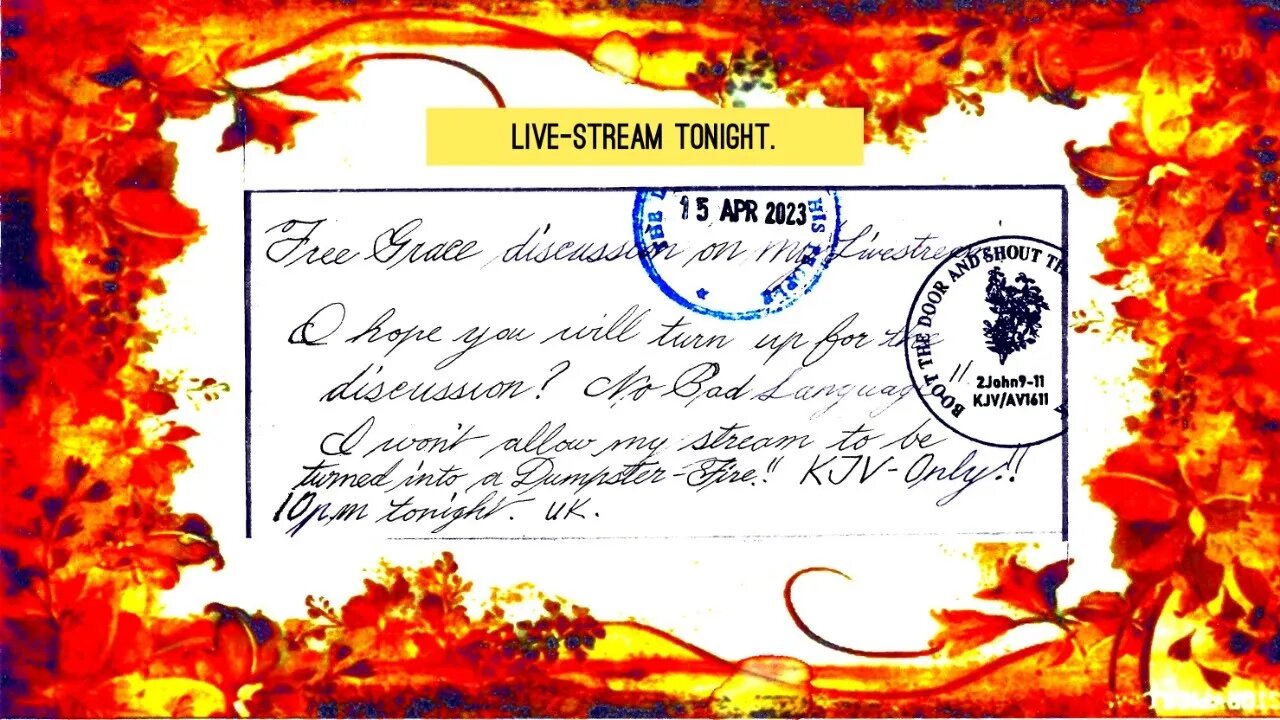 LIVE-STREAM TONIGHT.
15 APR 2023
Free Grace discussion on my Livestream
BOOT THE DOOR AND SHOUT TH
2John9-11
KJV/AV1611
I hope you will turn up for the
discussion? No Bad Language!!
I won't allow my stream to be
turned into a Dumpster-Fire!! KJV-Only!!
10p,m tonight. UK.